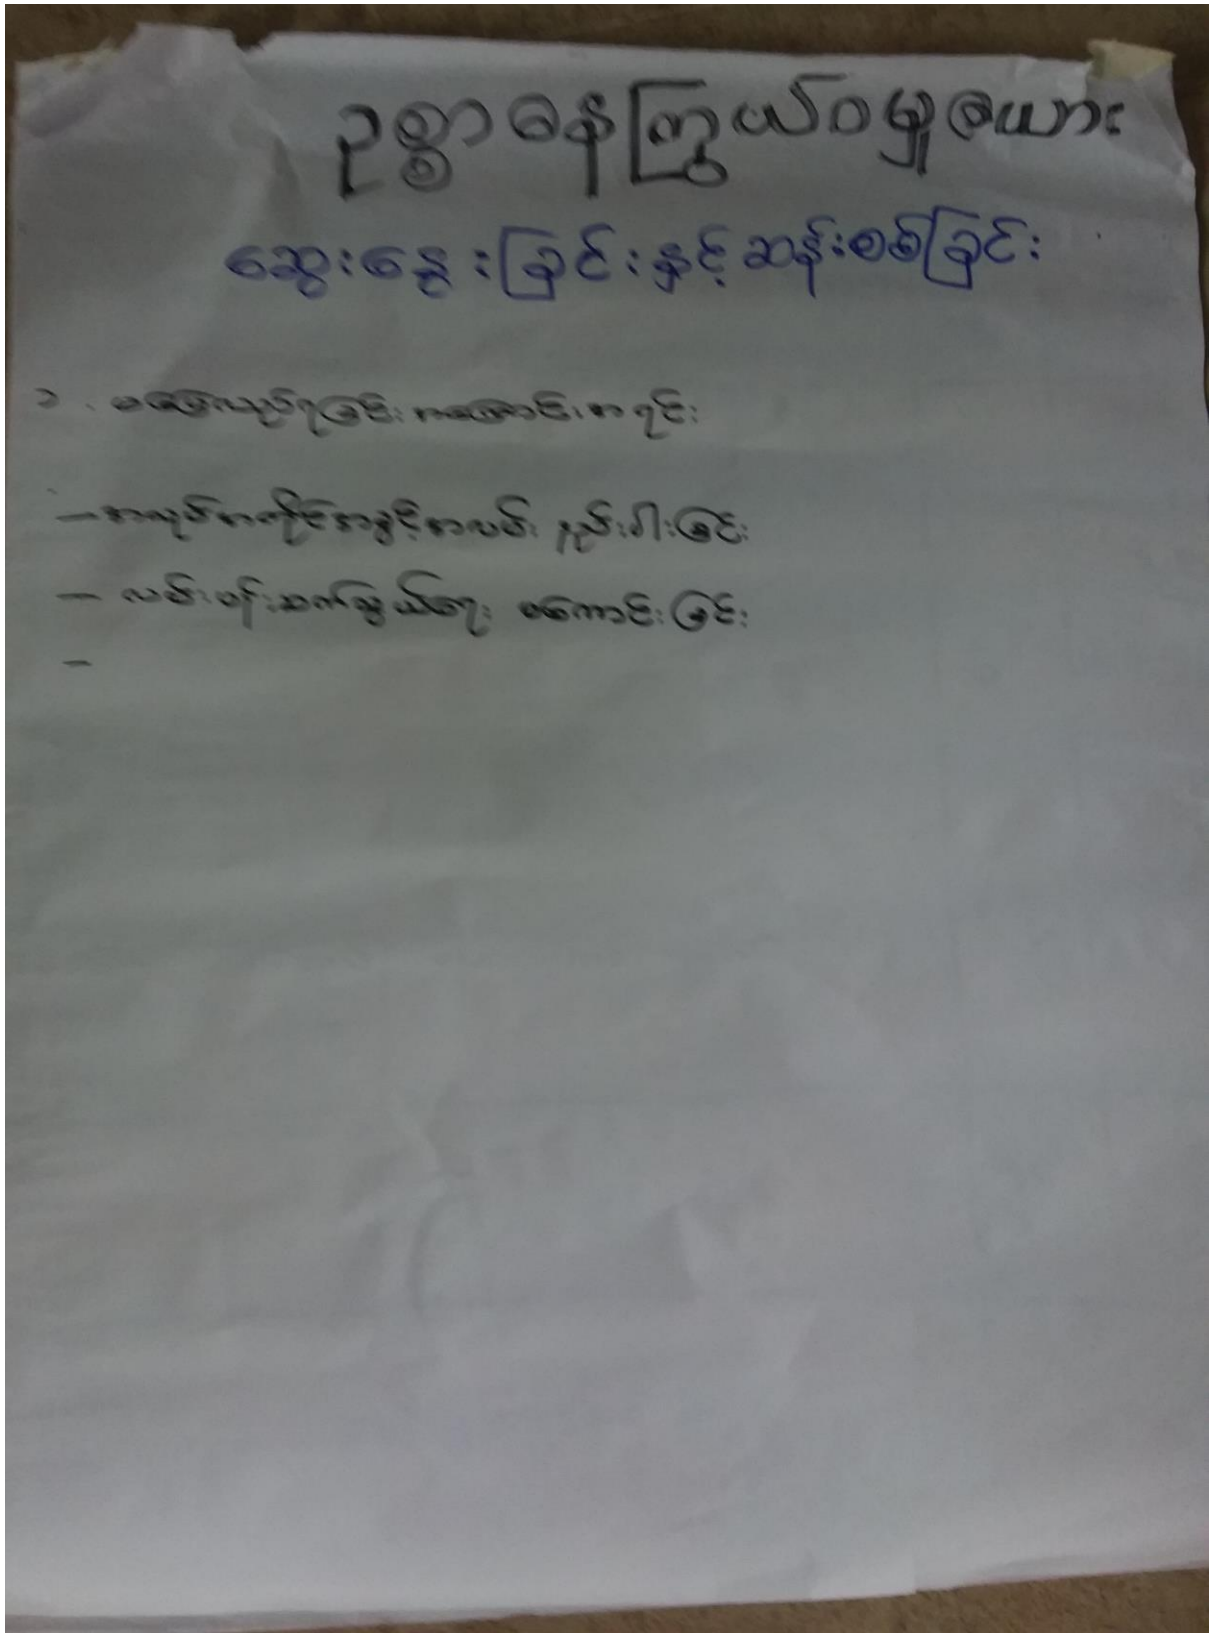 ဥစ္စာဓနကြွယ်ဝမှုဇယား
ဆွေးနွေးခြင်းနှင့်ဆန်းစစ်ခြင်း
၁. အကြောင်းအရင်း
- အလုပ်အကိုင်အခွင့်အလမ်း နည်းပါးခြင်း
- လမ်းပန်းဆက်သွယ်ရေး မကောင်းခြင်း
-